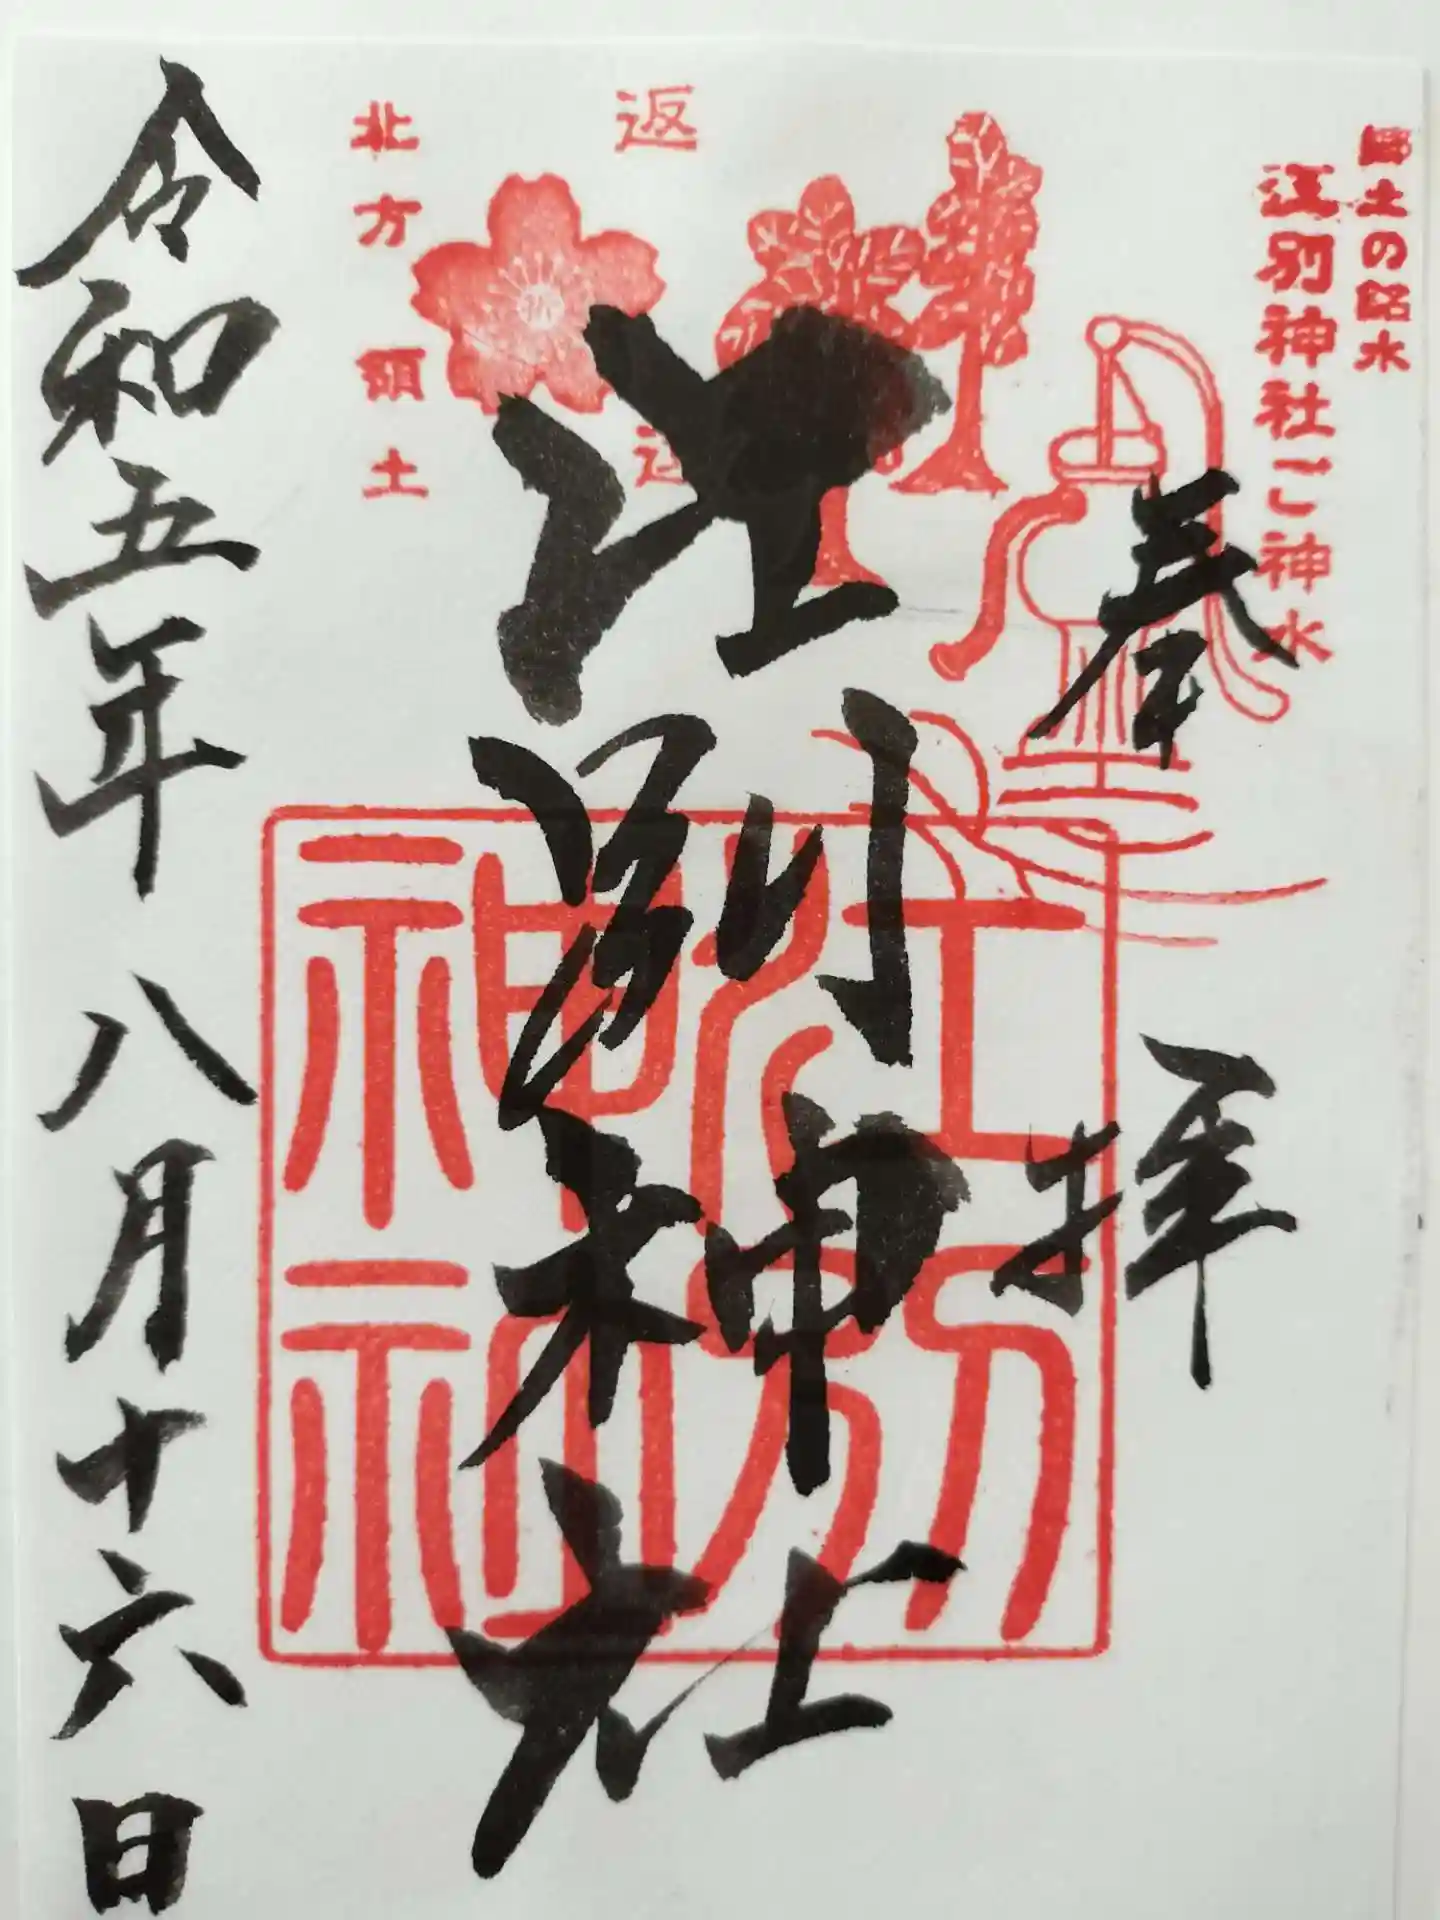 郷土の銘水
江別神社ご神水
奉拝
江別神社
江別神社
返還
北方領土
令和五年八月十六日